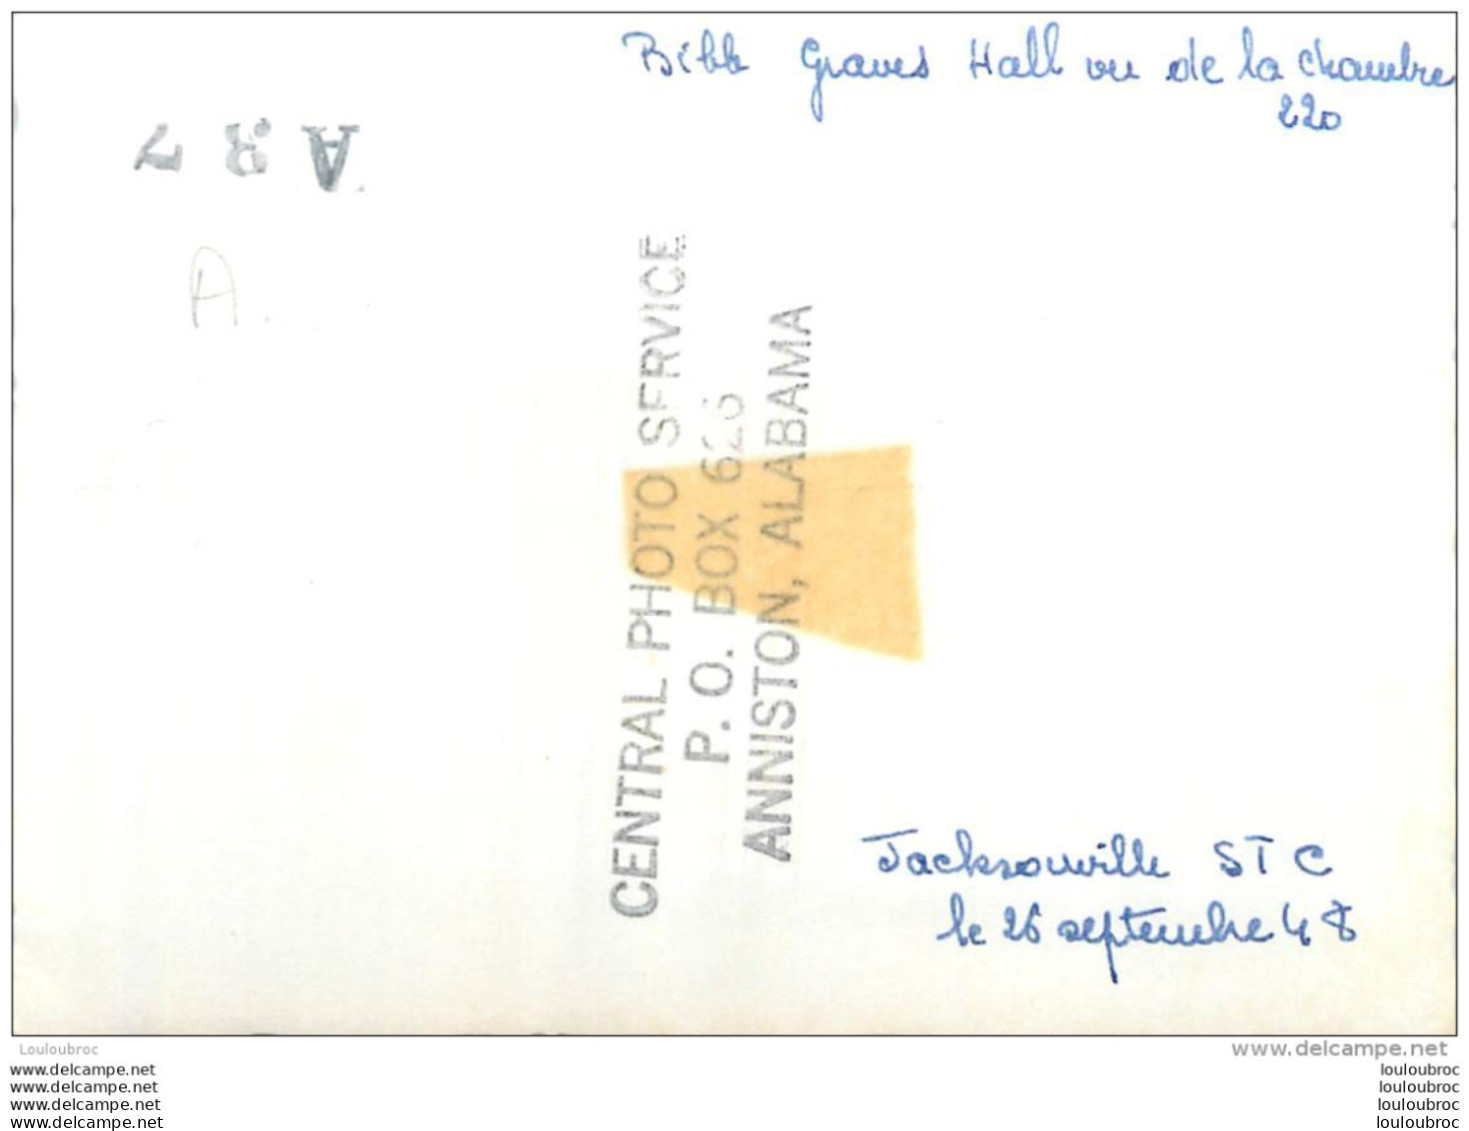 Bibb Graves Hall vu de la chambre
220
A 87
A
CENTRAL PHOTO SERVICE
P. O. BOX 626
ANNISTON, ALABAMA
Jacksonville STC
le 26 septembre 48
Louloubroc
www.delcampe.net
www.delcampe.net
www.delcampe.net
www.delcampe.net
www.delcampe.net
louloubroc
louloubroc
louloubroc
louloubroc